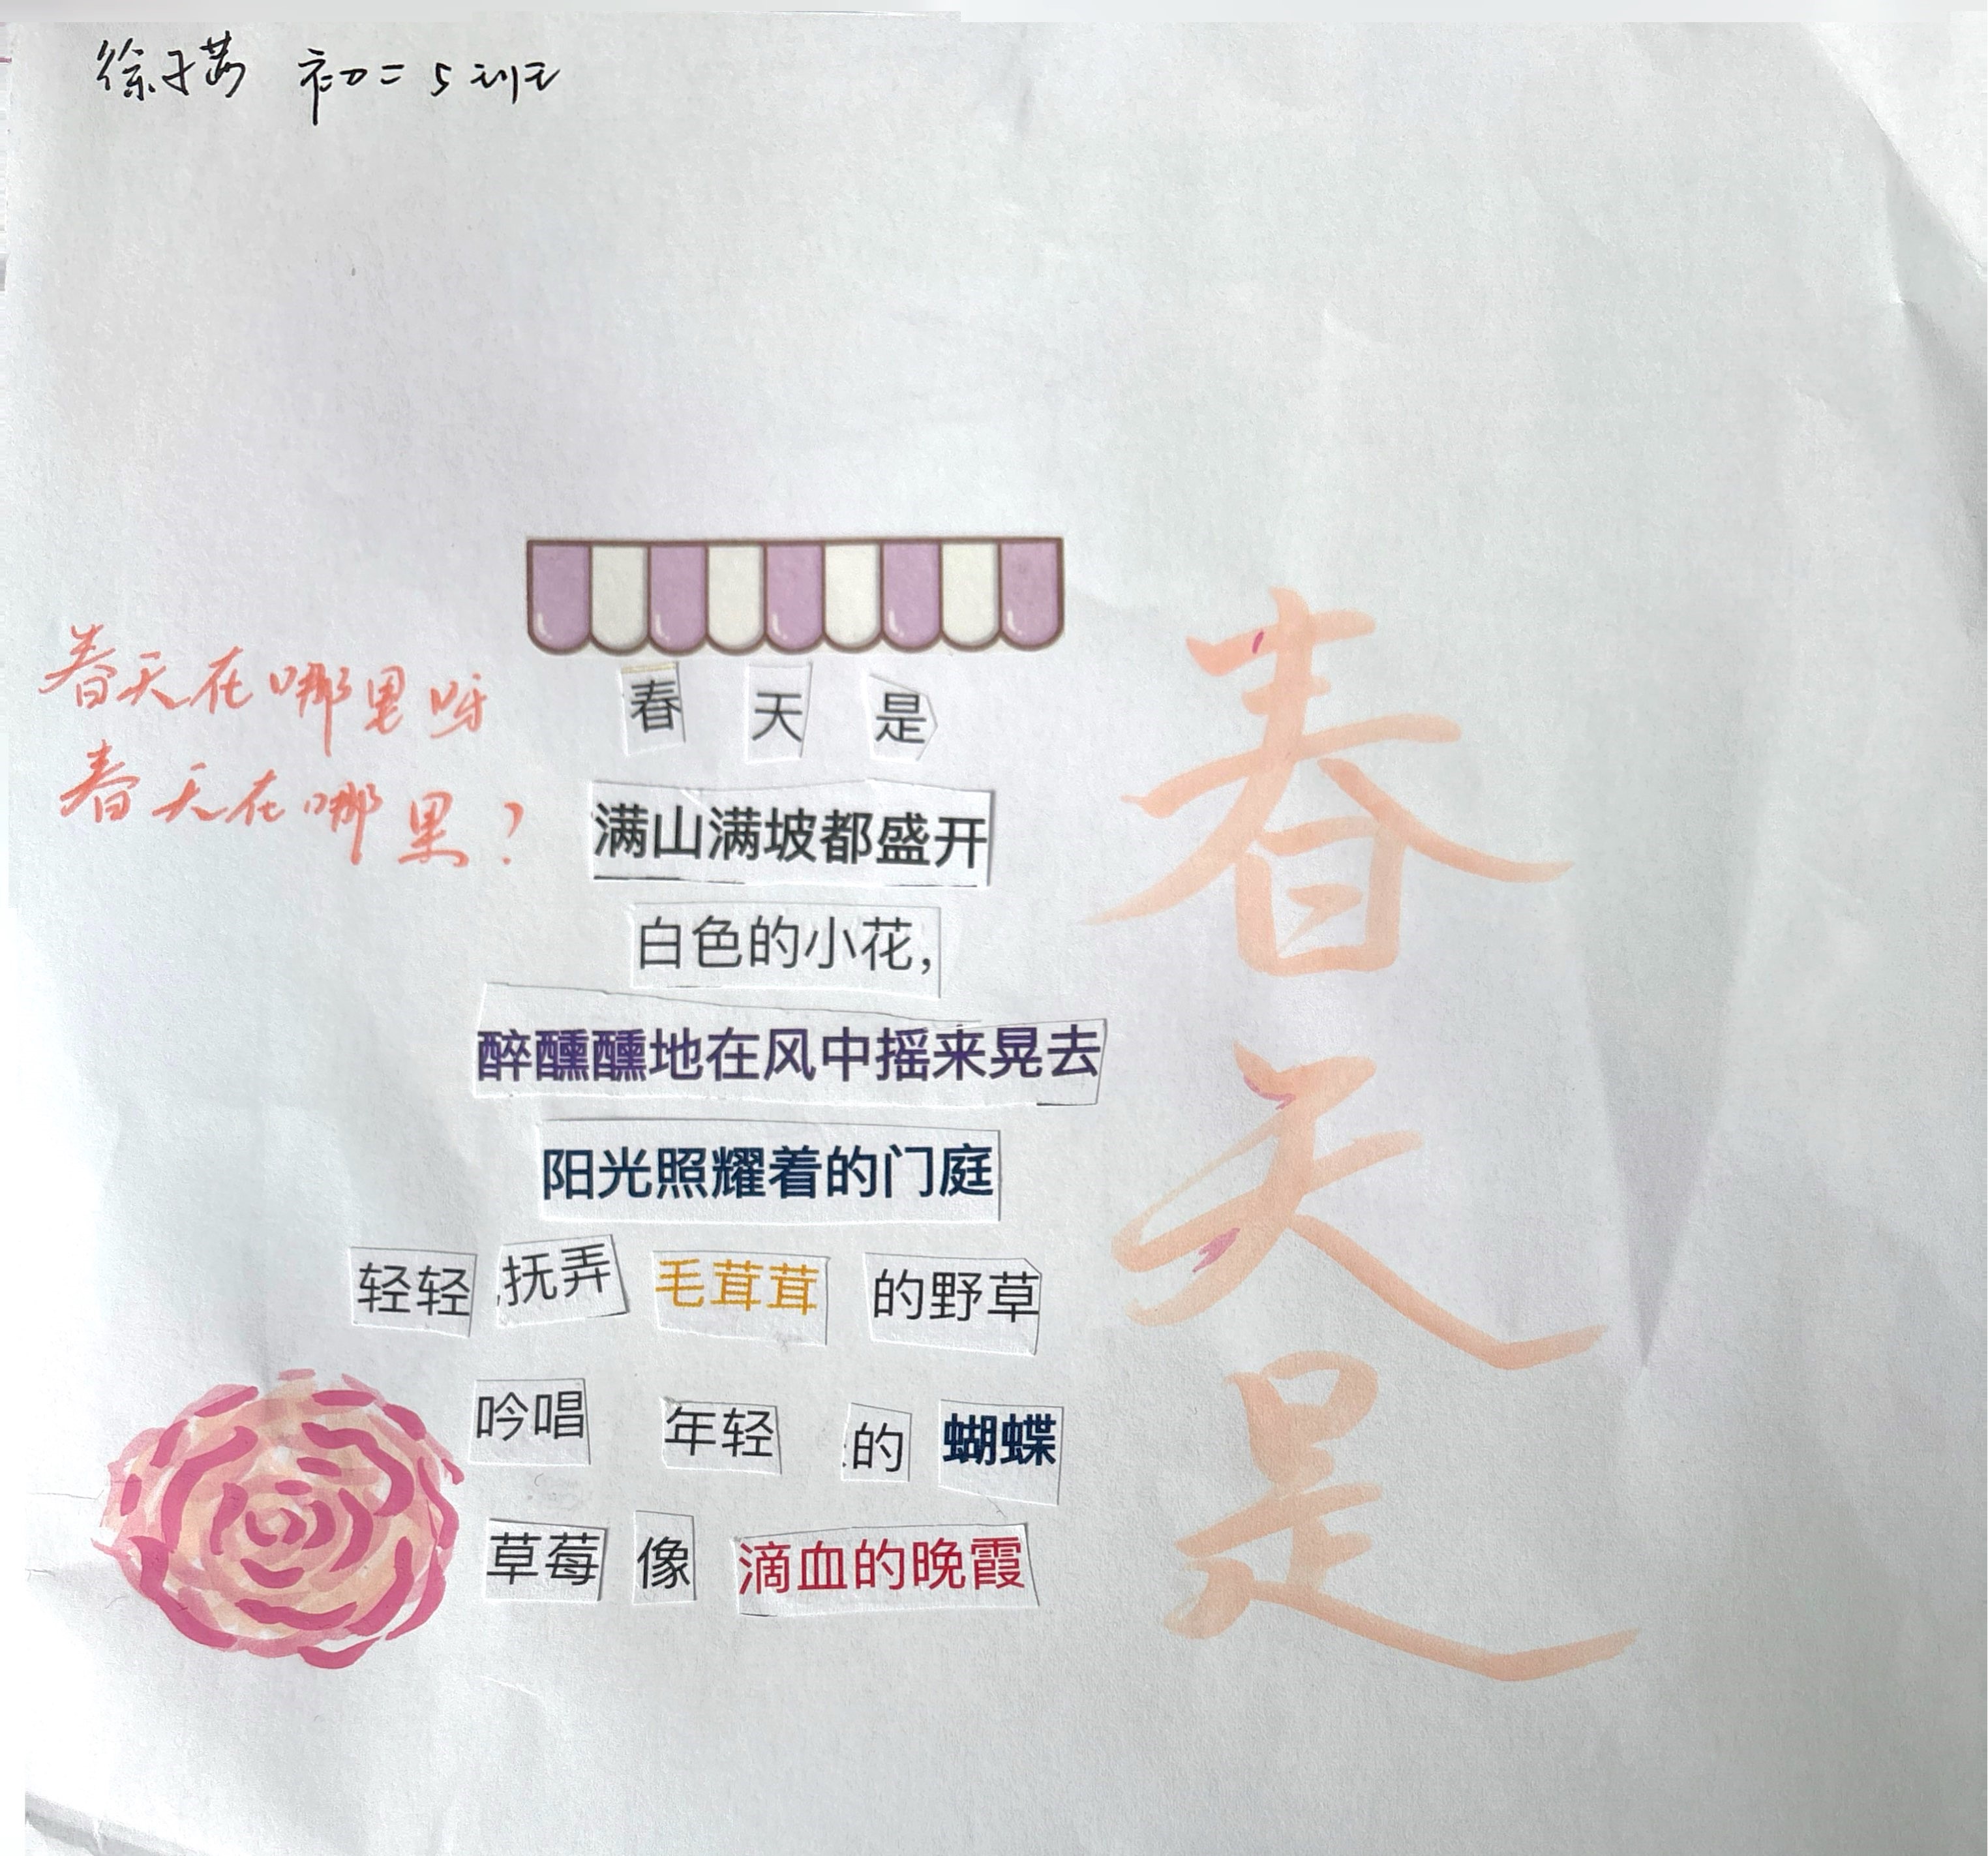 徐子茜 初二5班
春天在哪里呀
春天在哪里？
春天是
满山满坡都盛开
白色的小花，
醉醺醺地在风中摇来晃去
阳光照耀着的门庭
轻轻抚弄毛茸茸的野草
吟唱年轻的蝴蝶
草莓像滴血的晚霞
春天是